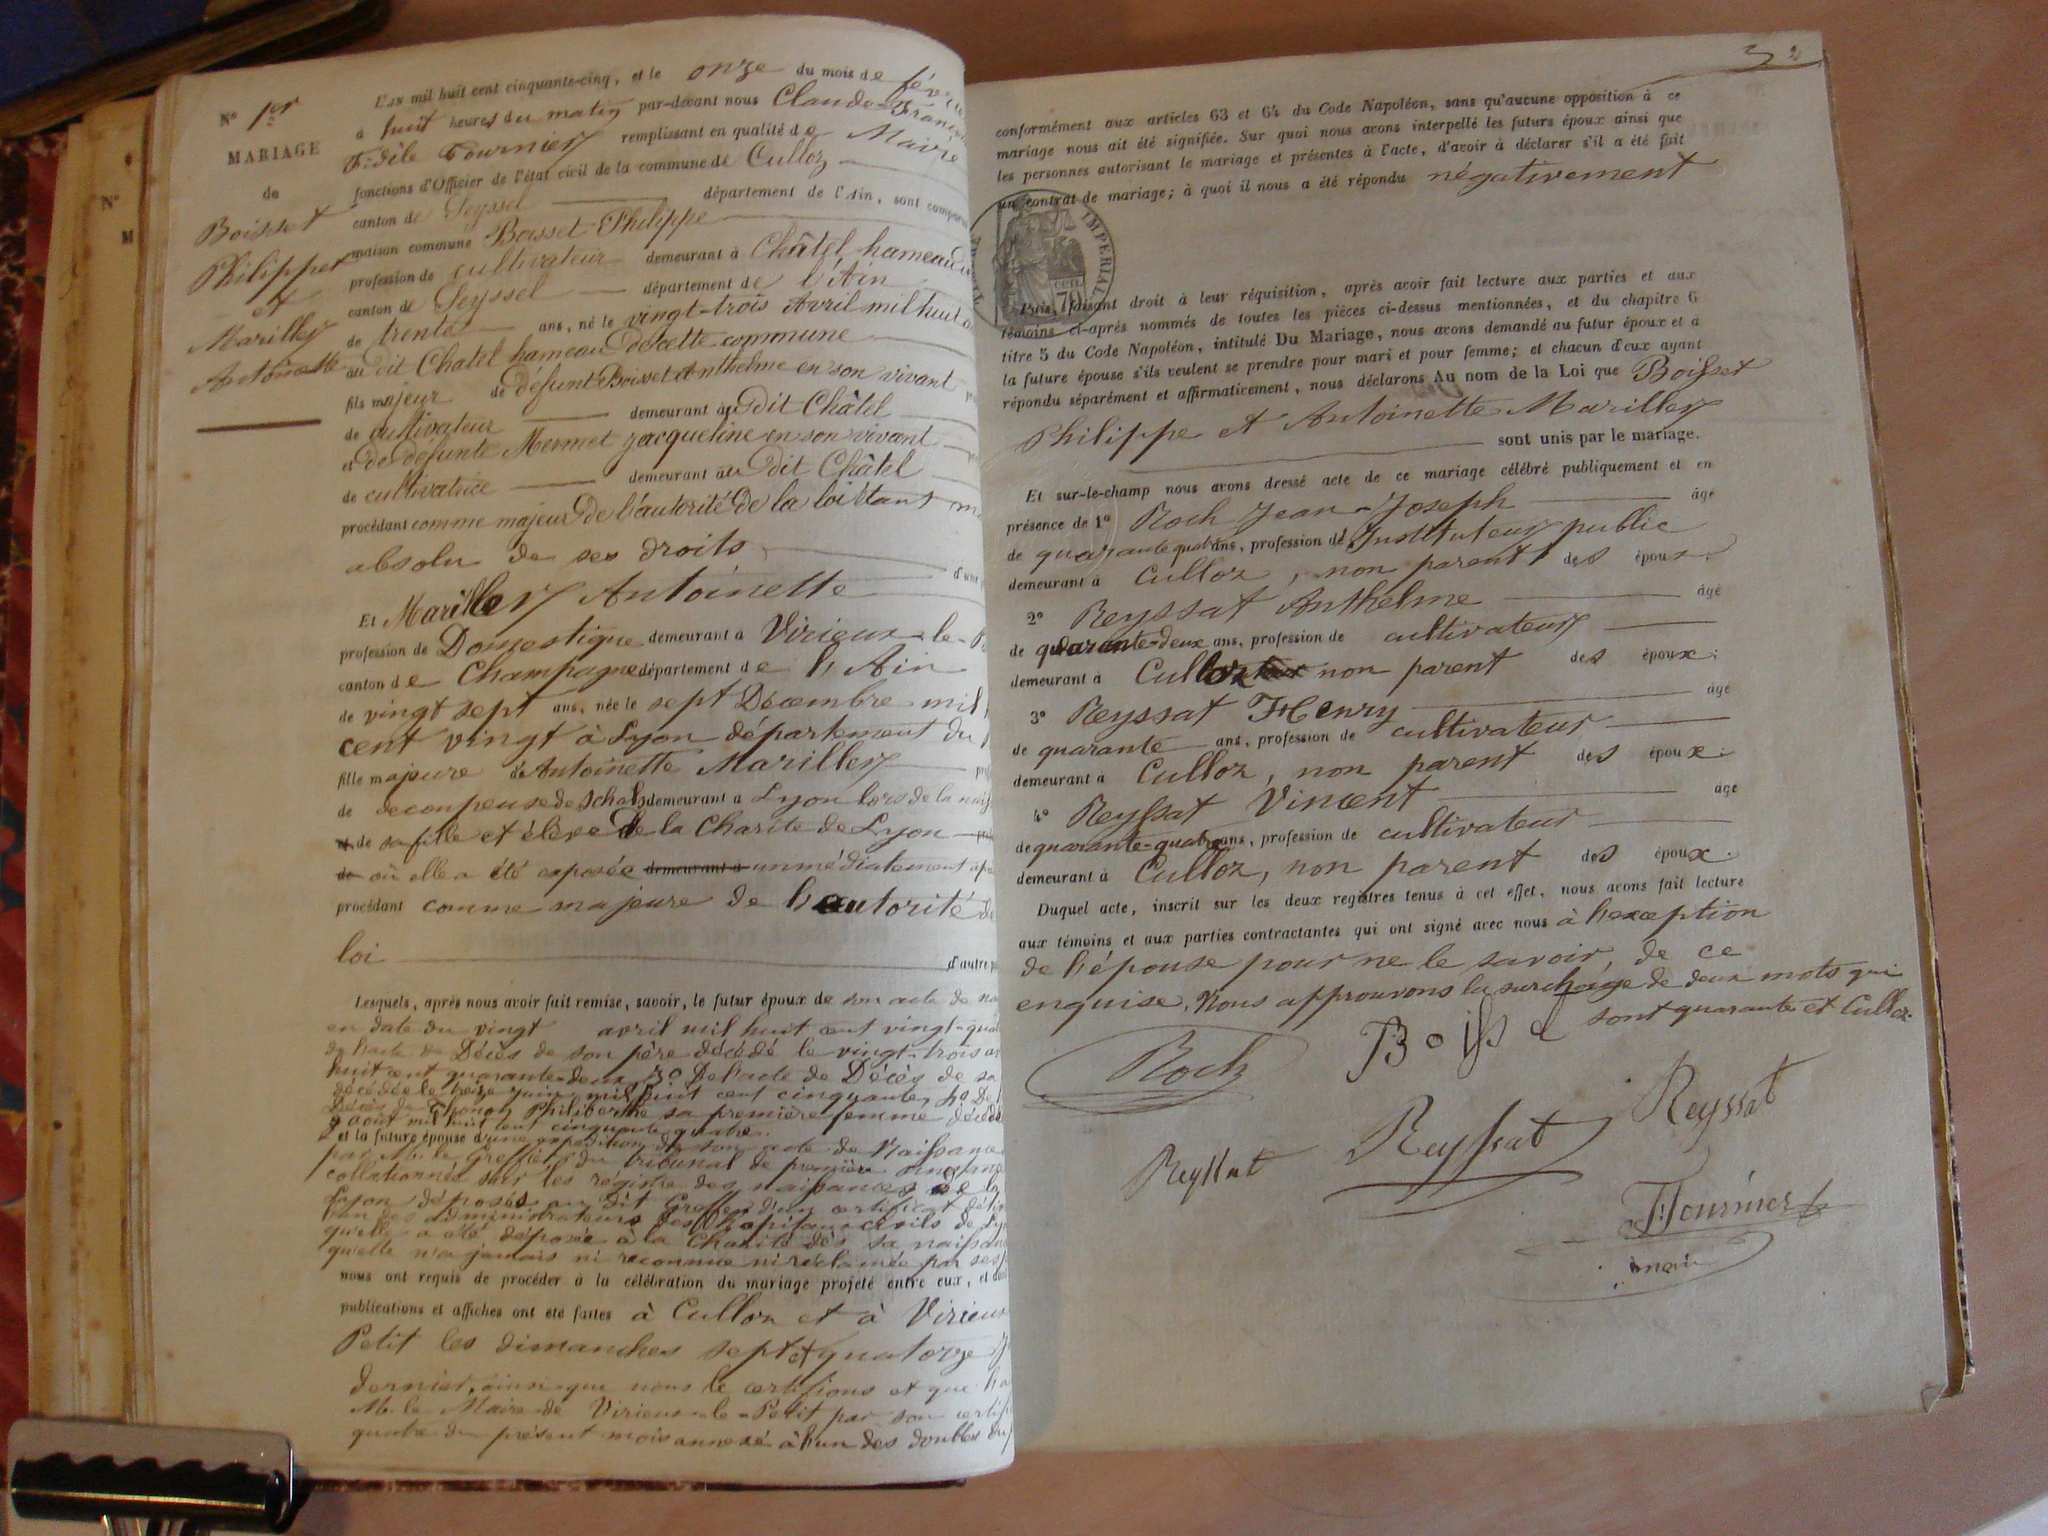 Nº 1er
MARIAGE
de
Boisset
Philippe
et
Marilley
Antoinette
L'an mil huit cent cinquante-cinq, et le onze du mois de
à huit heures du matin par-devant nous Claude-
Fidèle Fournier remplissant en qualité de Maire
fonctions d'Officier de l'état civil de la commune de Culloz
canton de Seyssel département de l'Ain, sont
maison commune Boisset Philippe
profession de cultivateur demeurant à Châtel, hameau
canton de Seyssel département de l'Ain
de trente ans, né le vingt-trois Avril mil huit
au dit Chatel hameau de cette commune
fils majeur de défunt Boisset Anthelme en son vivant
de cultivateur demeurant au dit Châtel
et de défunte Mermet Jacqueline en son vivant
de cultivatrice demeurant au dit Châtel
procédant comme majeur de l'autorité de la loi étant
absolu de ses droits
Et Marilley Antoinette
profession de Domestique demeurant à Virieux-le-
canton de Champagne département de l'Ain
de vingt sept ans, née le sept Décembre mil
cent vingt à Lyon département du
fille majeure de Antoinette Marilley
de decoupeuse de schals demeurant à Lyon lors de la
et de sa fille et élève de la Charité de Lyon
de où elle a été exposée demeurant à immédiatement
procédant comme majeure de l'autorité de
loi
Lesquels, après nous avoir fait remise, savoir, le futur époux de son acte de
en date du vingt avril mil huit cent vingt-
de l'acte de Décès de son père décédé le vingt-trois
huit cent quarante-deux, 3º De l'acte de Décès de sa
décédée le treize juin mil huit cent cinquante, 4º De
Décès de Philiberthe sa première femme décédée
août mil huit cent cinquante quatre.
et la future épouse d'une expédition de son acte de Naissance
par Mr. le Greffier du tribunal de première
collationnée sur les régistre des naissances de
Lyon déposés au dit Greffe d'un certificat
l'un des administrateurs des hopitaux civils de
qu'elle a été déposée à la Charité dès sa
qu'elle n'a jamais ni reconnue ni réclamée par ses
nous ont requis de procéder à la célébration du mariage projeté entre eux, et
publications et affiches ont été faites à Culloz et à Virieux
Petit les dimanches sept et quatorze
dernier, ainsi que nous le certifions et que
Mr. le Maire de Virieux-le-Petit par son
quatre du présent mois annexé à l'un des doubles du
2
conformément aux articles 63 et 64 du Code Napoléon, sans qu'aucune opposition à ce
mariage nous ait été signifiée. Sur quoi nous avons interpellé les futurs époux ainsi que
les personnes autorisant le mariage et présentes à l'acte, d'avoir à déclarer s'il a été fait
un contrat de mariage; à quoi il nous a été répondu négativement
IMPERIAL
70
Puis, faisant droit à leur réquisition, après avoir fait lecture aux parties et aux
témoins ci-après nommés de toutes les pièces ci-dessus mentionnées, et du chapitre 6
titre 5 du Code Napoléon, intitulé Du Mariage, nous avons demandé au futur époux et à
la future épouse s'ils veulent se prendre pour mari et pour femme; et chacun d'eux ayant
répondu séparément et affirmativement, nous déclarons Au nom de la Loi que Boisset
Philippe et Antoinette Marilley
sont unis par le mariage.
Et sur-le-champ nous avons dressé acte de ce mariage célébré publiquement et en
présence de 1º Roch Jean-Joseph âgé
de quarante quatre ans, profession de Instituteur public
demeurant à Culloz, non parent des époux.
2º Reyssat Anthelme âgé
de quarante-deux ans, profession de cultivateur
demeurant à Culloz non parent des époux;
3º Reyssat Henry âgé
de quarante ans, profession de cultivateur
demeurant à Culloz, non parent des époux.
4º Reyssat Vincent âgé
de quarante-quatre ans, profession de cultivateur
demeurant à Culloz, non parent des époux.
Duquel acte, inscrit sur les deux registres tenus à cet effet, nous avons fait lecture
aux témoins et aux parties contractantes qui ont signé avec nous à l'exception
de l'épouse pour ne le savoir, de ce
enquise. Nous approuvons la surcharge de deux mots qui
sont quarante et Culloz.
Roch
Boisset
Reyssat
Reyssat
Reyssat
Fournier
maire